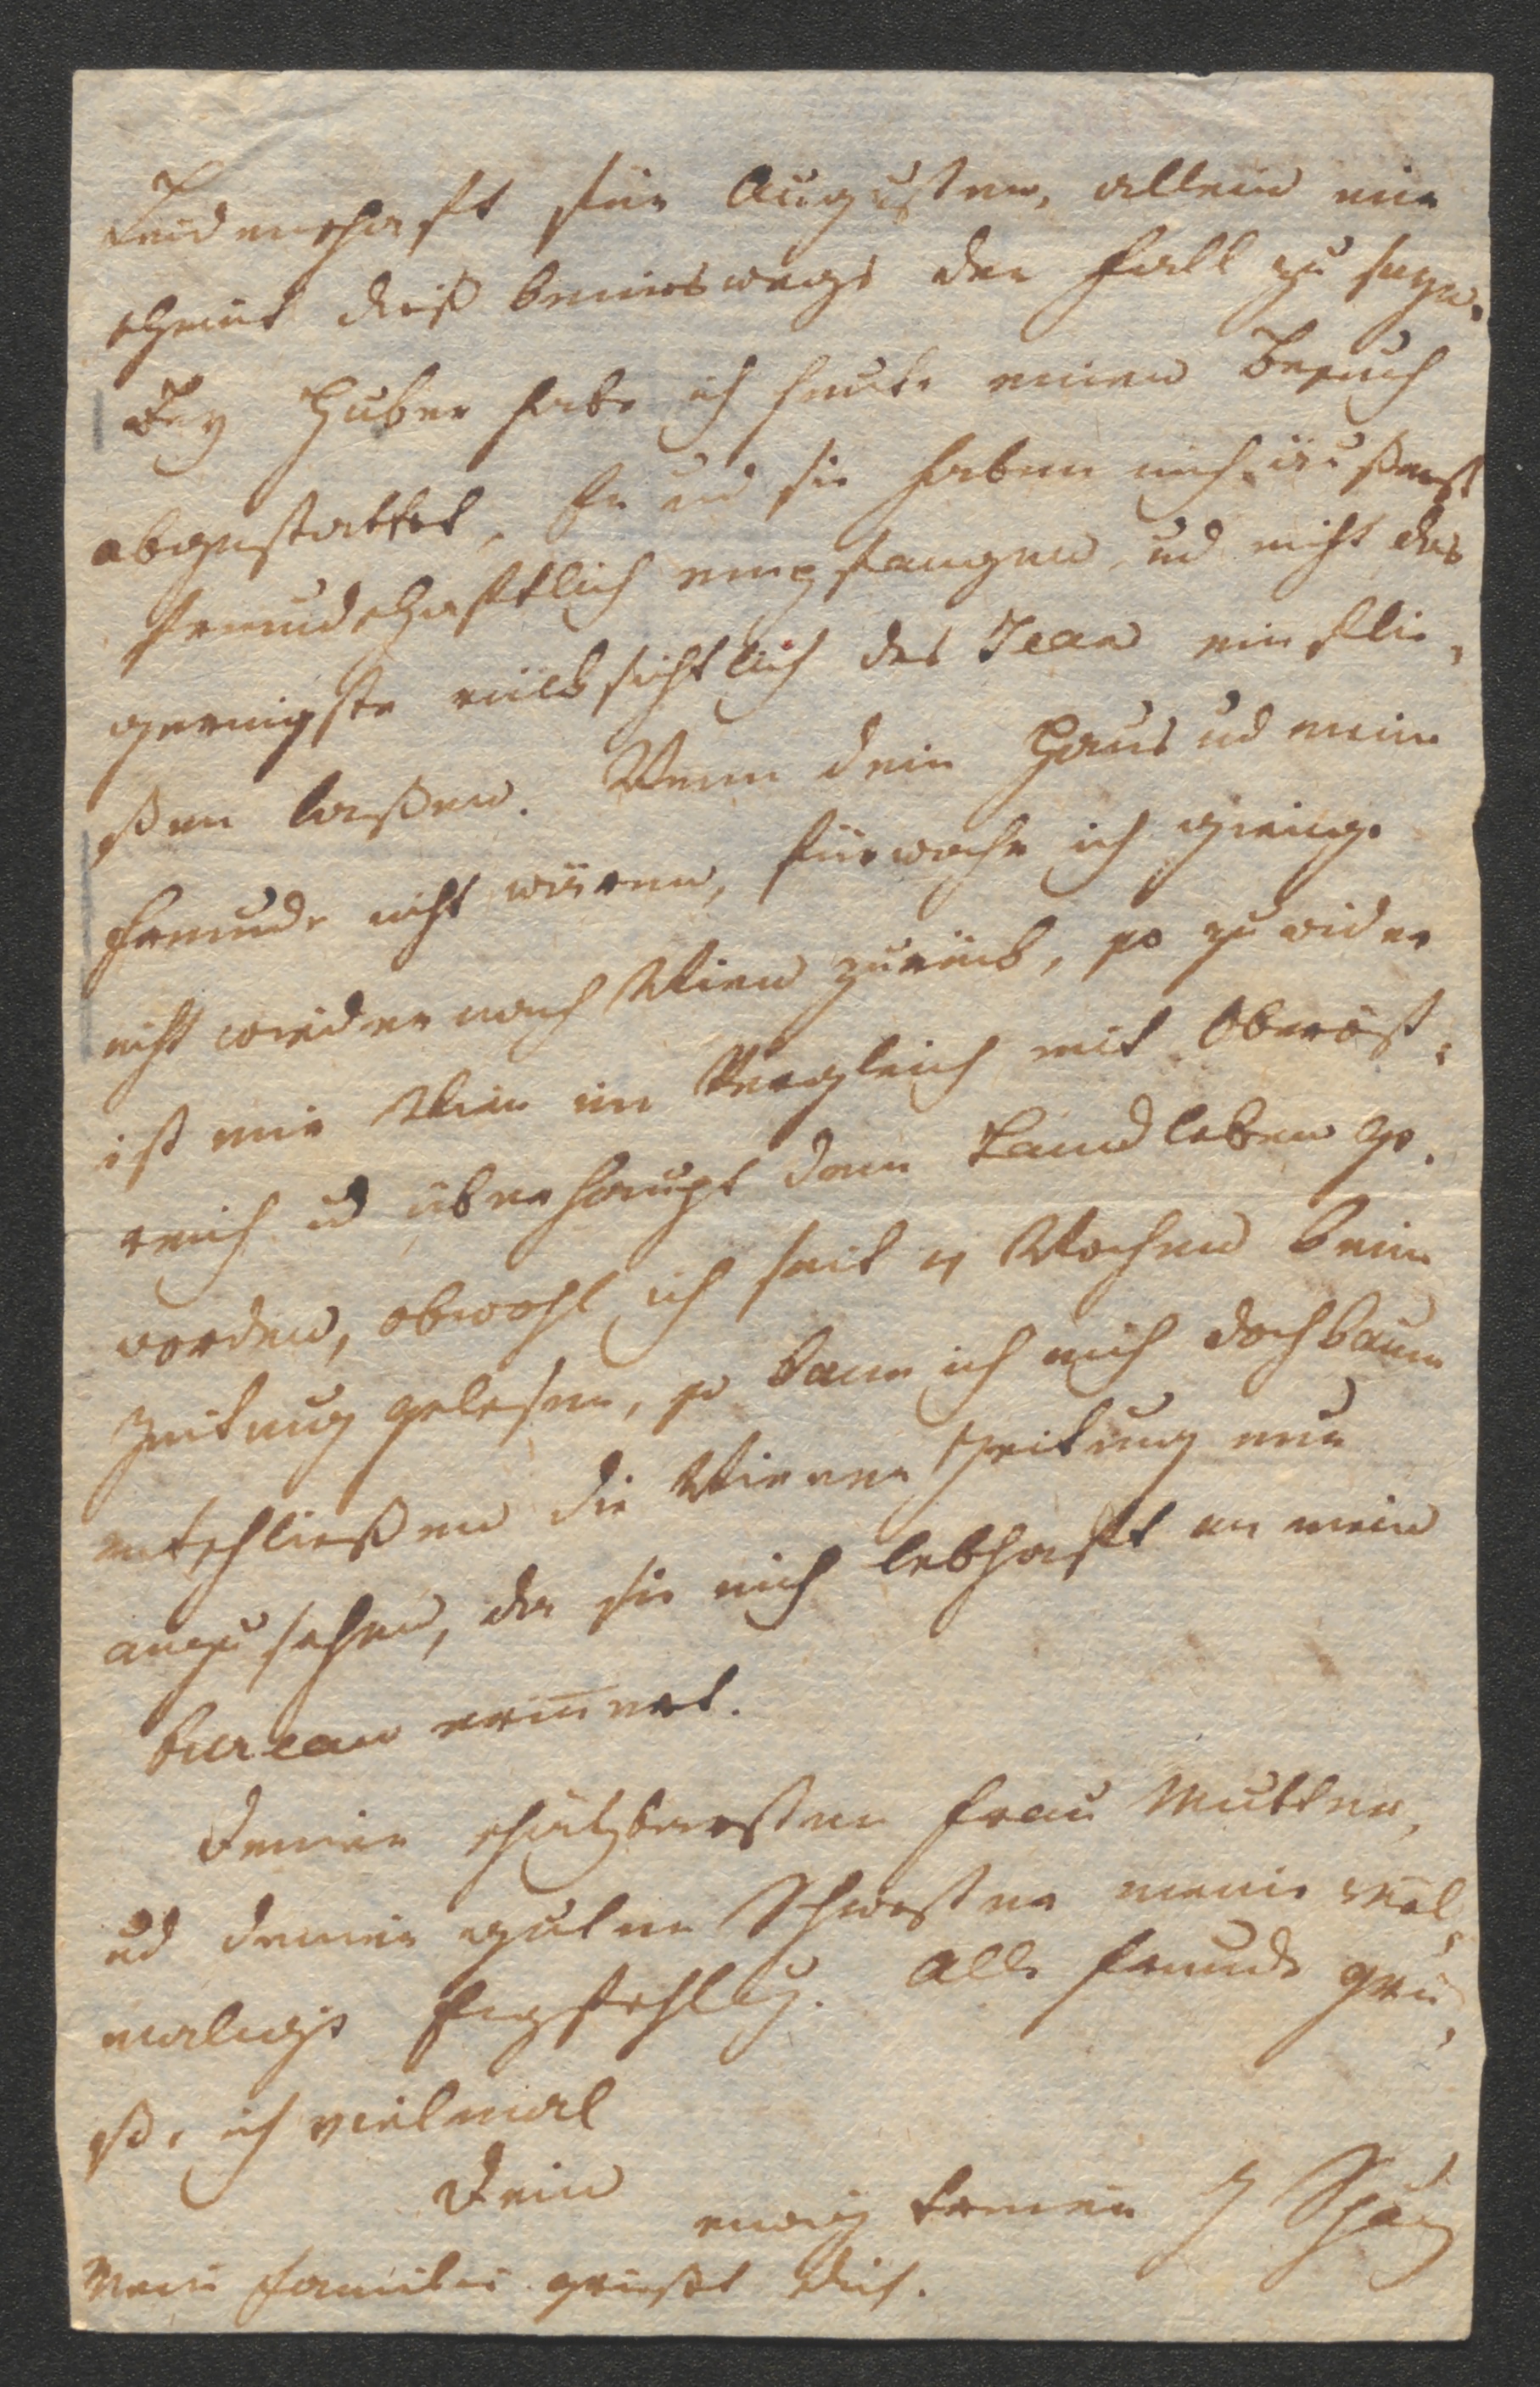 Leidenschaft für Augusten, allein mir
scheint dieß keineswegs der Fall zu seyn.
Bey Huber habe ich heute einen Besuch
abgestattet, Er und sie haben mich äußerst
freundschaftlich empfangen, und nicht das
geringste rücksichtlich des Jean einflie-
ßen laßen. Wenn dein Haus und meine
Freunde nicht wären, fürwahr ich gienge
nicht wieder nach Wien zurück, so zuwider
ist mir Wien im Vergleich mit Oberöst-
reich ud überhaupt dem Landleben ge-
worden, obwohl ich seit 4 Wochen keine
Zeitung gelesen, so kann ich mich doch kaum
entschließen die Wiener Zeitung nur
anzusehen, da sie mich lebhaft an mein
bureau erinnert.
Deiner schätzbarsten Frau Mutter,
ud deiner guten Schwester meine viel-
malige Empfehlung. Alle Freunde grü-
ße ich vielmal
Dein
ewig treuer J
Meine Familie grüßt dich.